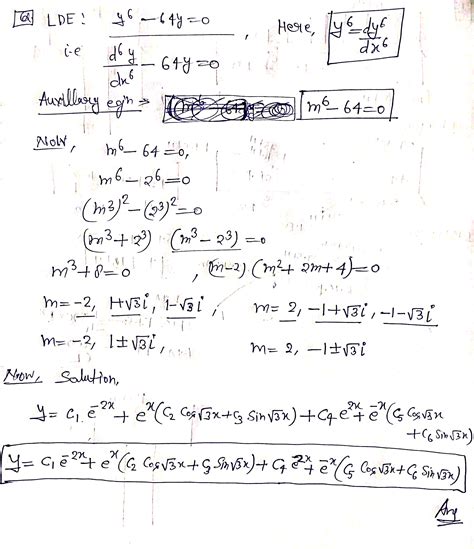 Q LDE: y⁶ - 64y = 0, Here, y⁶ = dy⁶/dx⁶
i.e d⁶y/dx⁶ - 64y = 0
Auxillary eqⁿ ⇒ m⁶ - 64 = 0
Now, m⁶ - 64 = 0,
m⁶ - 2⁶ = 0
(m³)² - (2³)² = 0
(m³ + 2³) (m³ - 2³) = 0
m³ + 8 = 0, (m-2) (m² + 2m + 4) = 0
m = -2, 1+√3i, 1-√3i, m = 2, -1+√3i, -1-√3i
m = -2, 1±√3i, m = 2, -1±√3i
Now, Solution,
y = C₁ e^-2x + e^x (C₂ Cos√3x + C₃ Sin√3x) + C₄ e^2x + e^-x (C₅ Cos√3x
+ C₆ Sin√3x)
y = C₁ e^-2x + e^x (C₂ Cos√3x + C₃ Sin√3x) + C₄ e^2x + e^-x (C₅ Cos√3x + C₆ Sin√3x)
Ans